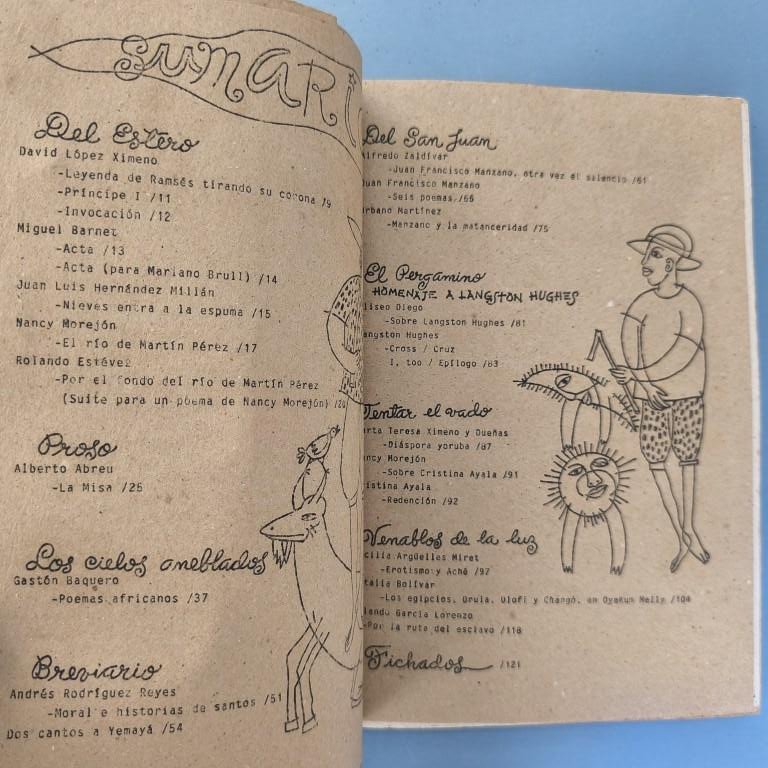 SUMARI
Del Estero
David López Ximeno
-Leyenda de Ramsés tirando su corona /9
-Príncipe I /11
-Invocación /12
Miguel Barnet
-Acta /13
-Acta (para Mariano Brull) /14
Juan Luis Hernández Millán
-Nieves entra a la espuma /15
Nancy Morejón
-El río de Martín Pérez /17
Rolando Estévez
-Por el fondo del río de Martín Pérez
(Suite para un poema de Nancy Morejón) /20
Proso
Alberto Abreu
-La Misa /25
Los cielos aneblados
Gastón Baquero
-Poemas africanos /37
Breviario
Andrés Rodríguez Reyes
-Moral e historias de santos /51
Dos cantos a Yemayá /54
Del San Juan
lfredo Zaldívar
-Juan Francisco Manzano, otra vez el silencio /61
uan Francisco Manzano
-Seis poemas /66
rbano Martínez
-Manzano y la matanceridad /75
El Pergamino
HOMENAJE A LANGSTON HUGHES
liseo Diego
-Sobre Langston Hughes /81
angston Hughes
-Cross / Cruz
I, too / Epílogo /83
Tentar el vado
rta Teresa Ximeno y Dueñas
-Diáspora yoruba /87
ncy Morejón
-Sobre Cristina Ayala /91
istina Ayala
-Redención /92
Venablos de la luz
cilia Argüelles Miret
-Erotismo y Aché /97
talia Bolívar
-Los egipcios, Orula, Olofi y Changó, en Oyekun Melly /104
lando García Lorenzo
-Por la ruta del esclavo /118
Fichados /121